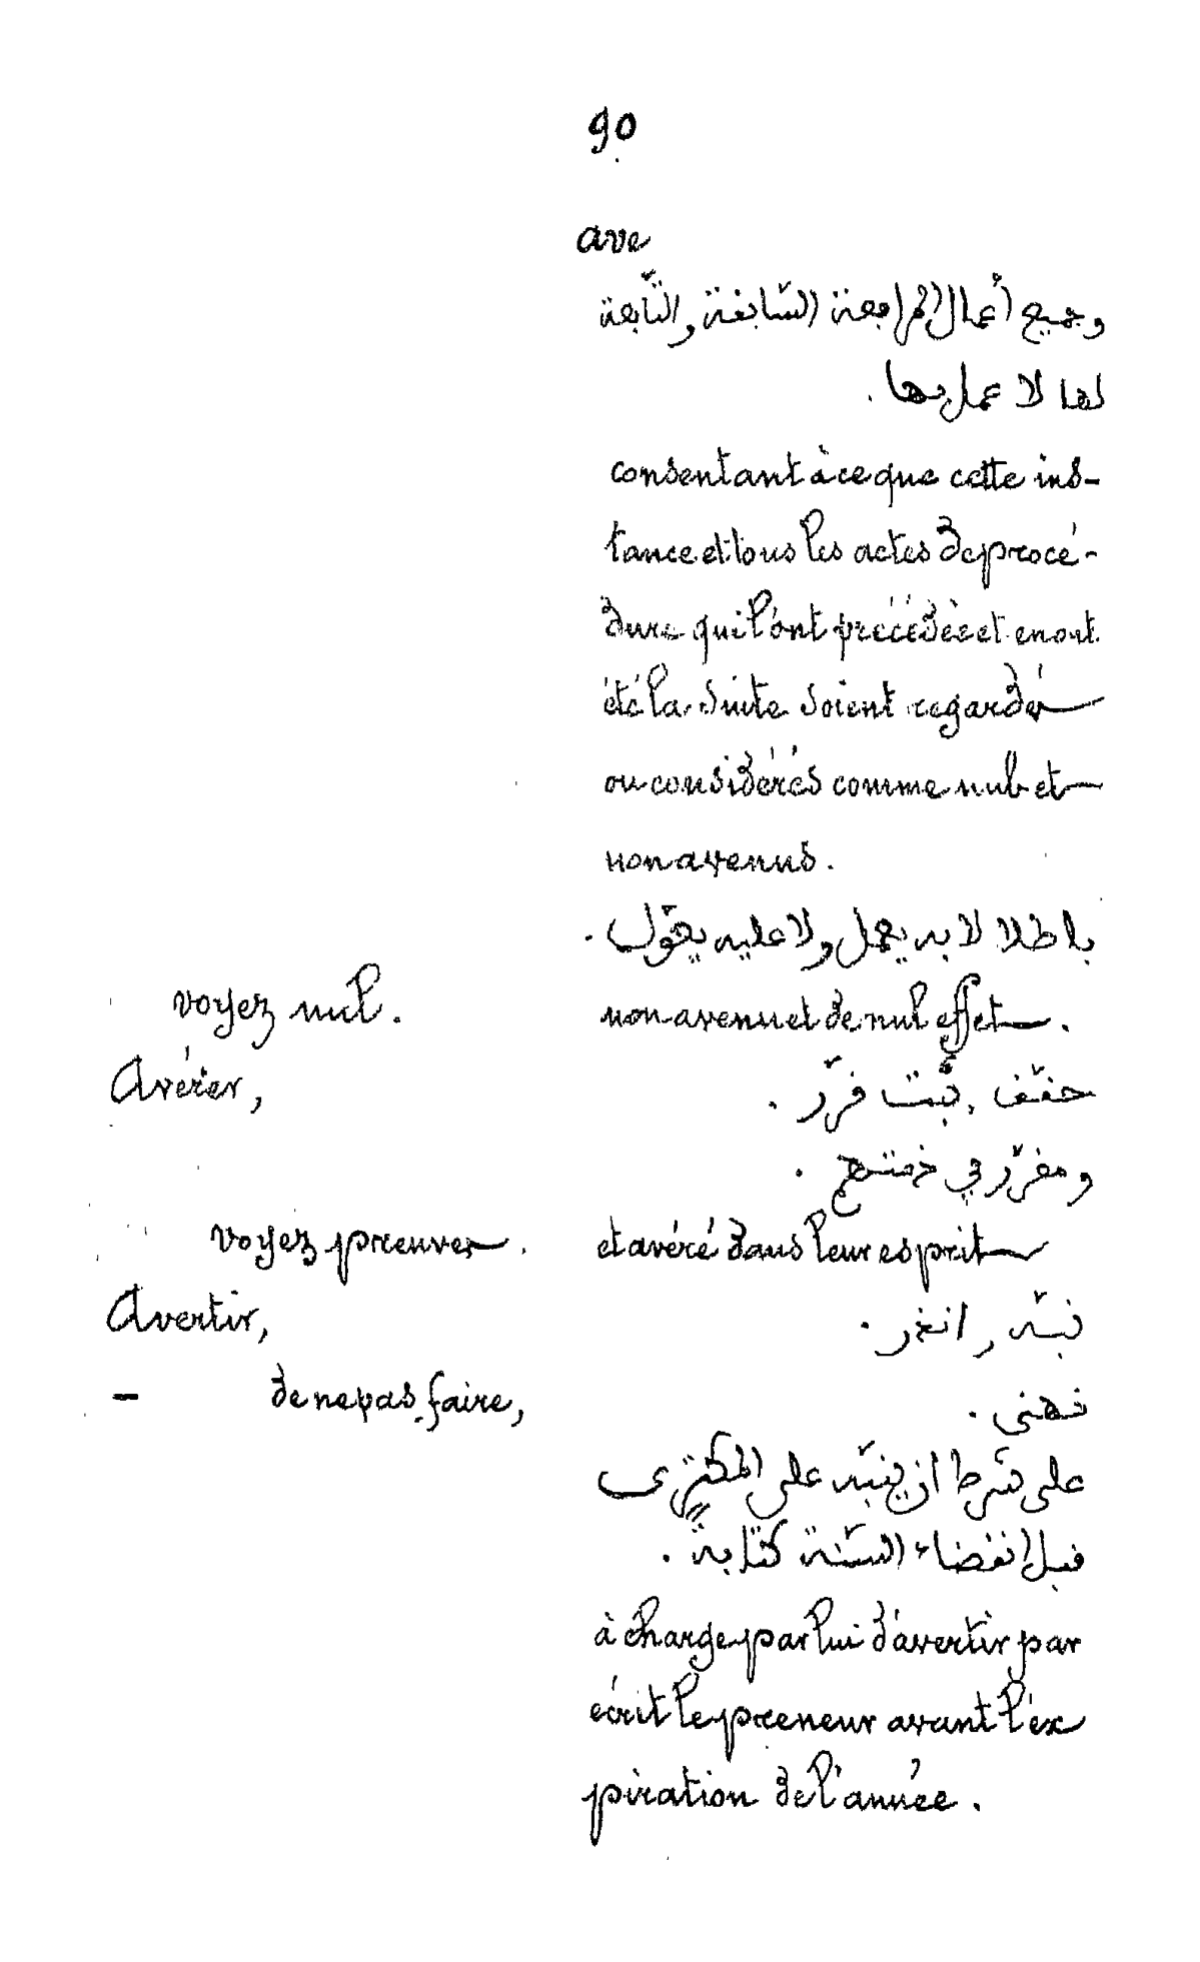 90
ave
وجميع أعمال المرافعة السّابقة والتّابعة
لها لا عمل بها.
consentant à ce que cette ins-
tance et tous les actes de procé-
dure qui l'ont précédée et en ont
été la suite soient regardés
ou considérés comme nuls et
non avenus.
باطلا لا به يعمل ولا عليه يعوّل.
voyez nul.
non avenu et de nul effet.
Avérer,
حقّق, ثبّت قرّر.
ومقرّر في ذمتهم.
voyez preuves.
et avéré dans leur esprit
Avertir,
نبّه, انذر.
– de ne pas faire,
نهى.
على شرط ان ينبّه على المكتري
قبل انقضاء السّنة كتابة.
à charge par lui d'avertir par
écrit le preneur avant l'ex
piration de l'année.